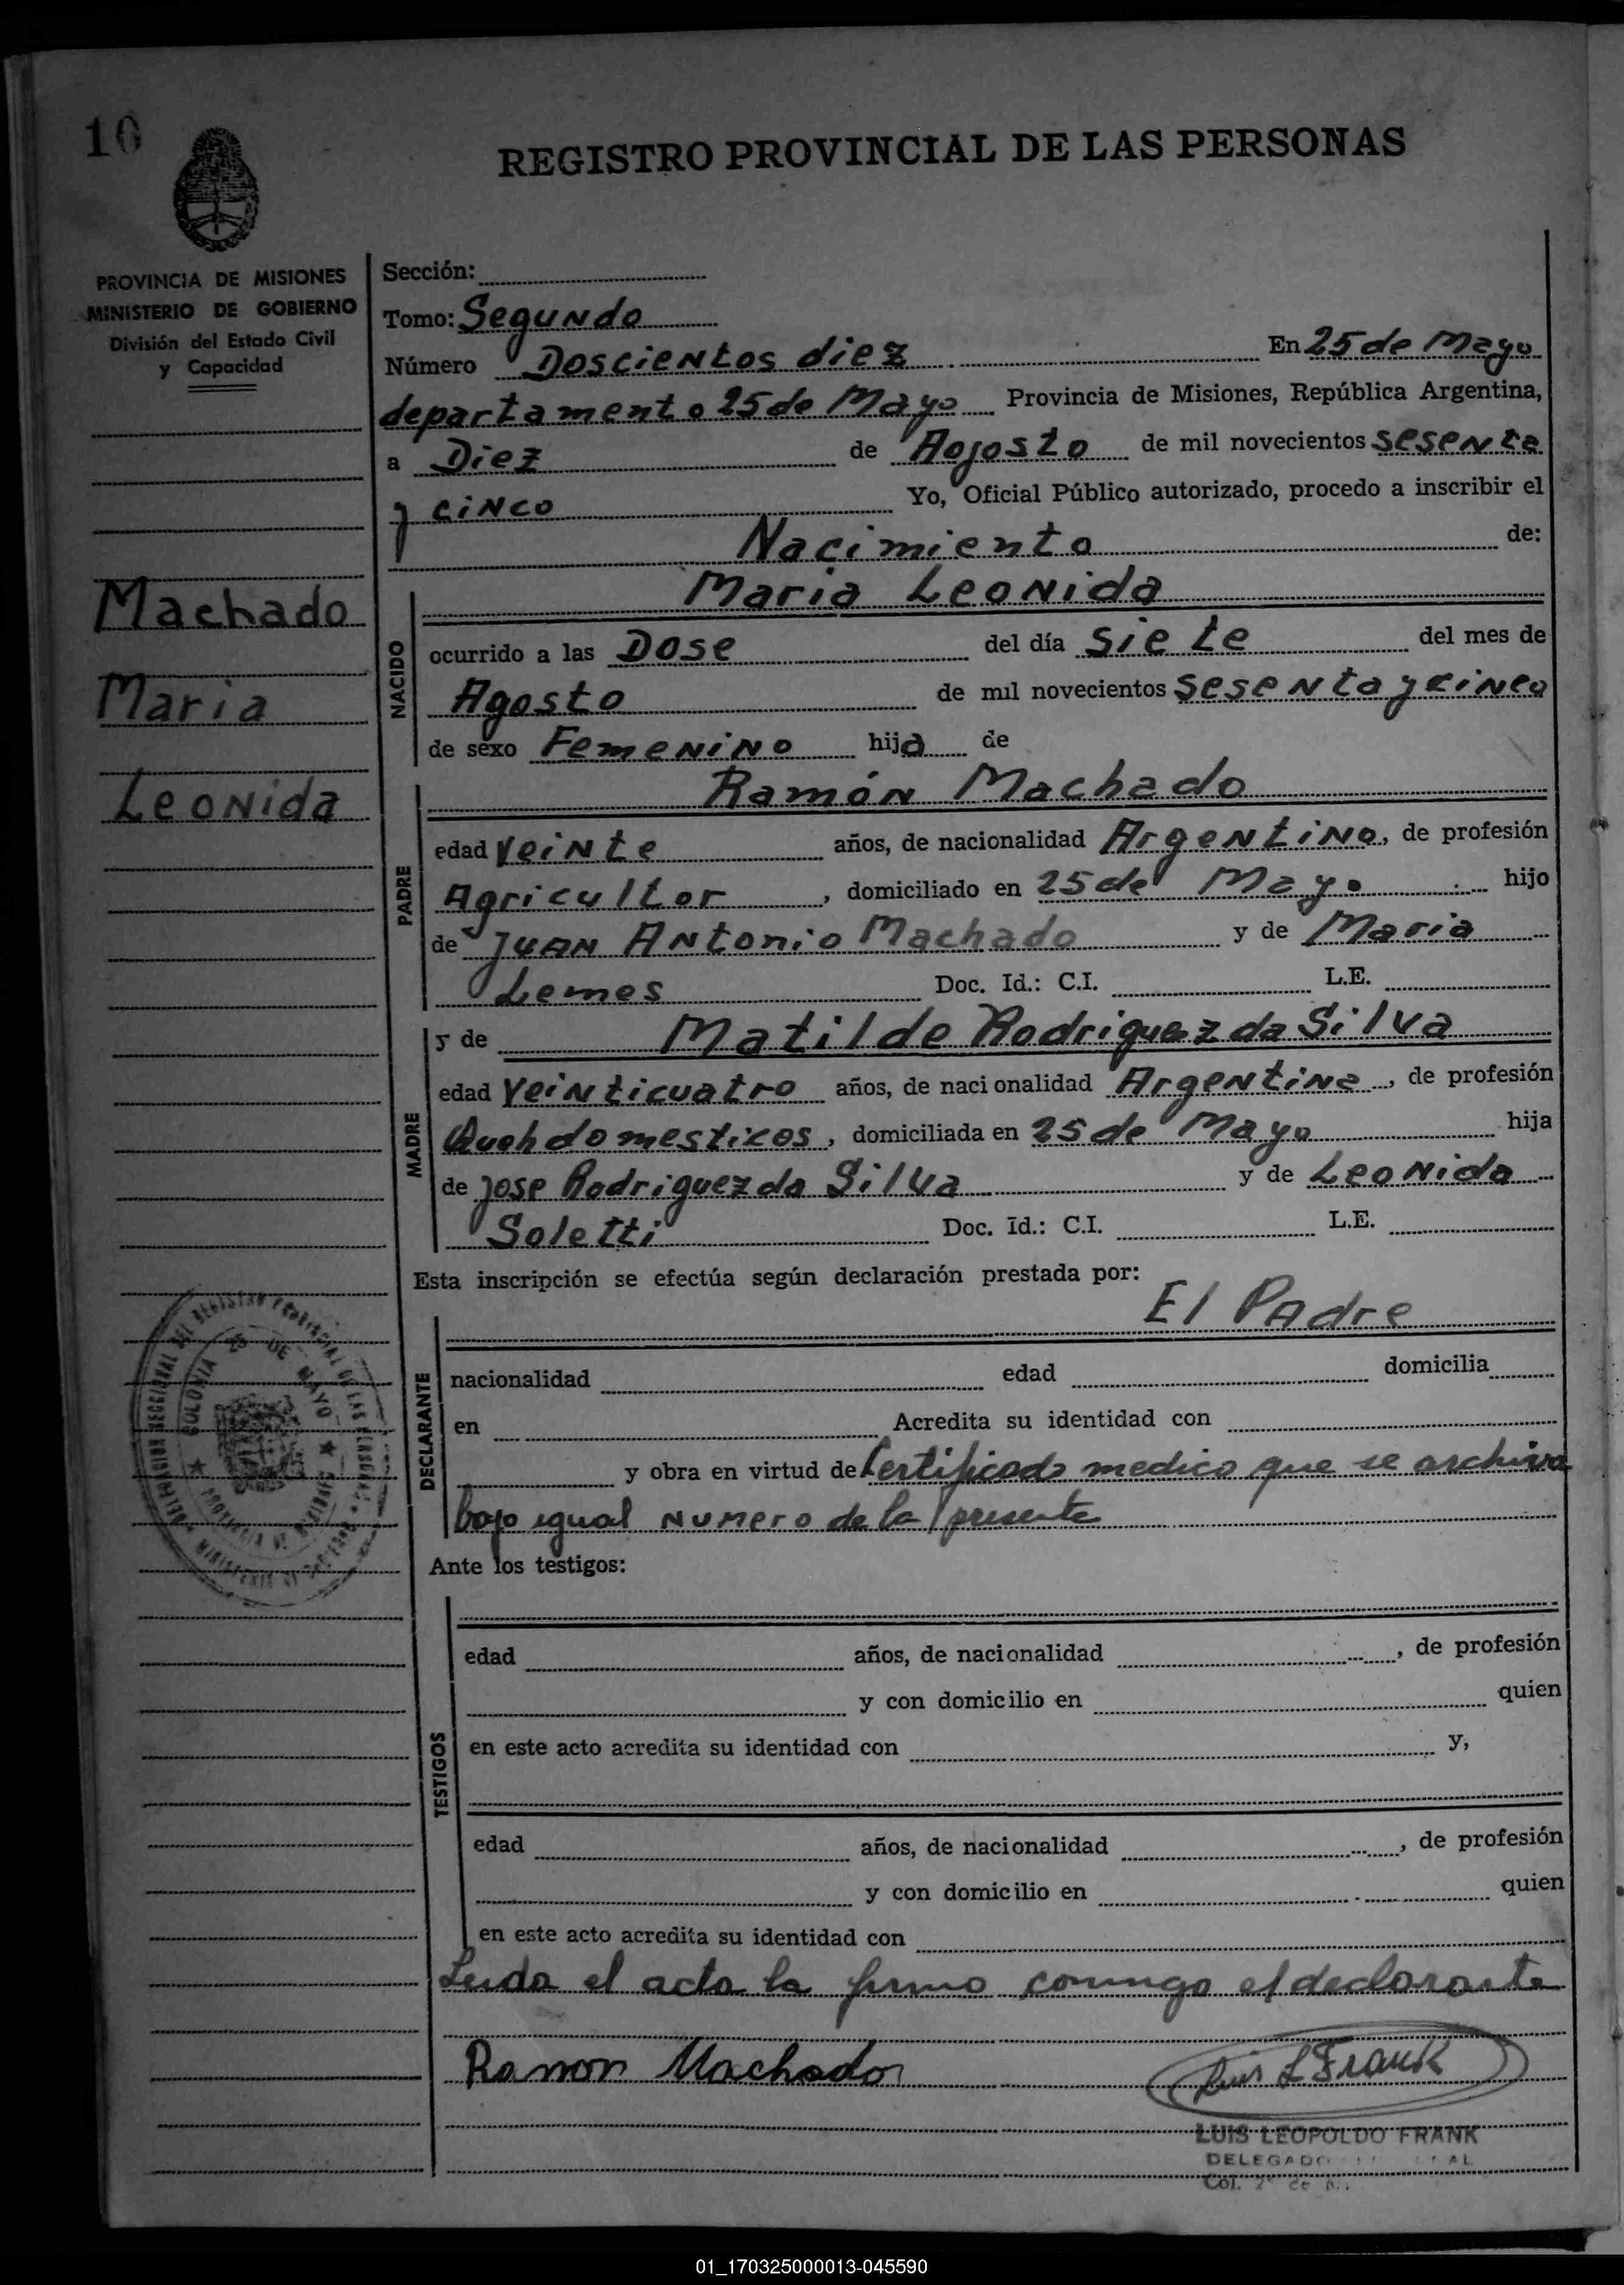 10
REGISTRO PROVINCIAL DE LAS PERSONAS
PROVINCIA DE MISIONES
MINISTERIO DE GOBIERNO
División del Estado Civil
y Capacidad
Machado
Maria
Leonida
Sección:
Tomo: Segundo
Número Doscientos diez En 25 de Mayo
departamento 25 de Mayo Provincia de Misiones, República Argentina,
a Diez de Agosto de mil novecientos sesenta
y cinco Yo, Oficial Público autorizado, procedo a inscribir el
Nacimiento de:
NACIDO
Maria Leonida
ocurrido a las Dose del día siete del mes de
Agosto de mil novecientos sesenta y cinco
de sexo Femenino hija de
PADRE
Ramón Machado
edad veinte años, de nacionalidad Argentino, de profesión
Agricultor, domiciliado en 25 de Mayo hijo
de Juan Antonio Machado y de Maria
Lemes Doc. Id.: C.I. L.E.
MADRE
y de Matilde Rodriguez da Silva
edad veinticuatro años, de nacionalidad Argentina, de profesión
domesticos, domiciliada en 25 de Mayo hija
de Jose Rodriguez da Silva y de Leonida
Soletti Doc. Id.: C.I. L.E.
Esta inscripción se efectúa según declaración prestada por:
DECLARANTE
El Padre
nacionalidad edad domicilia
en Acredita su identidad con
y obra en virtud de Certificado medico que se archiva
bajo igual numero de la presente
COLONIA 25 DE MAYO
Ante los testigos:
TESTIGOS
edad años, de nacionalidad , de profesión
y con domicilio en quien
en este acto acredita su identidad con y,
edad años, de nacionalidad , de profesión
y con domicilio en quien
en este acto acredita su identidad con
Leida el acta la firma conmigo el declarante
Ramon Machado Luis L Frank
LUIS LEOPOLDO FRANK
DELEGADO
Col.
01_170325000013-045590